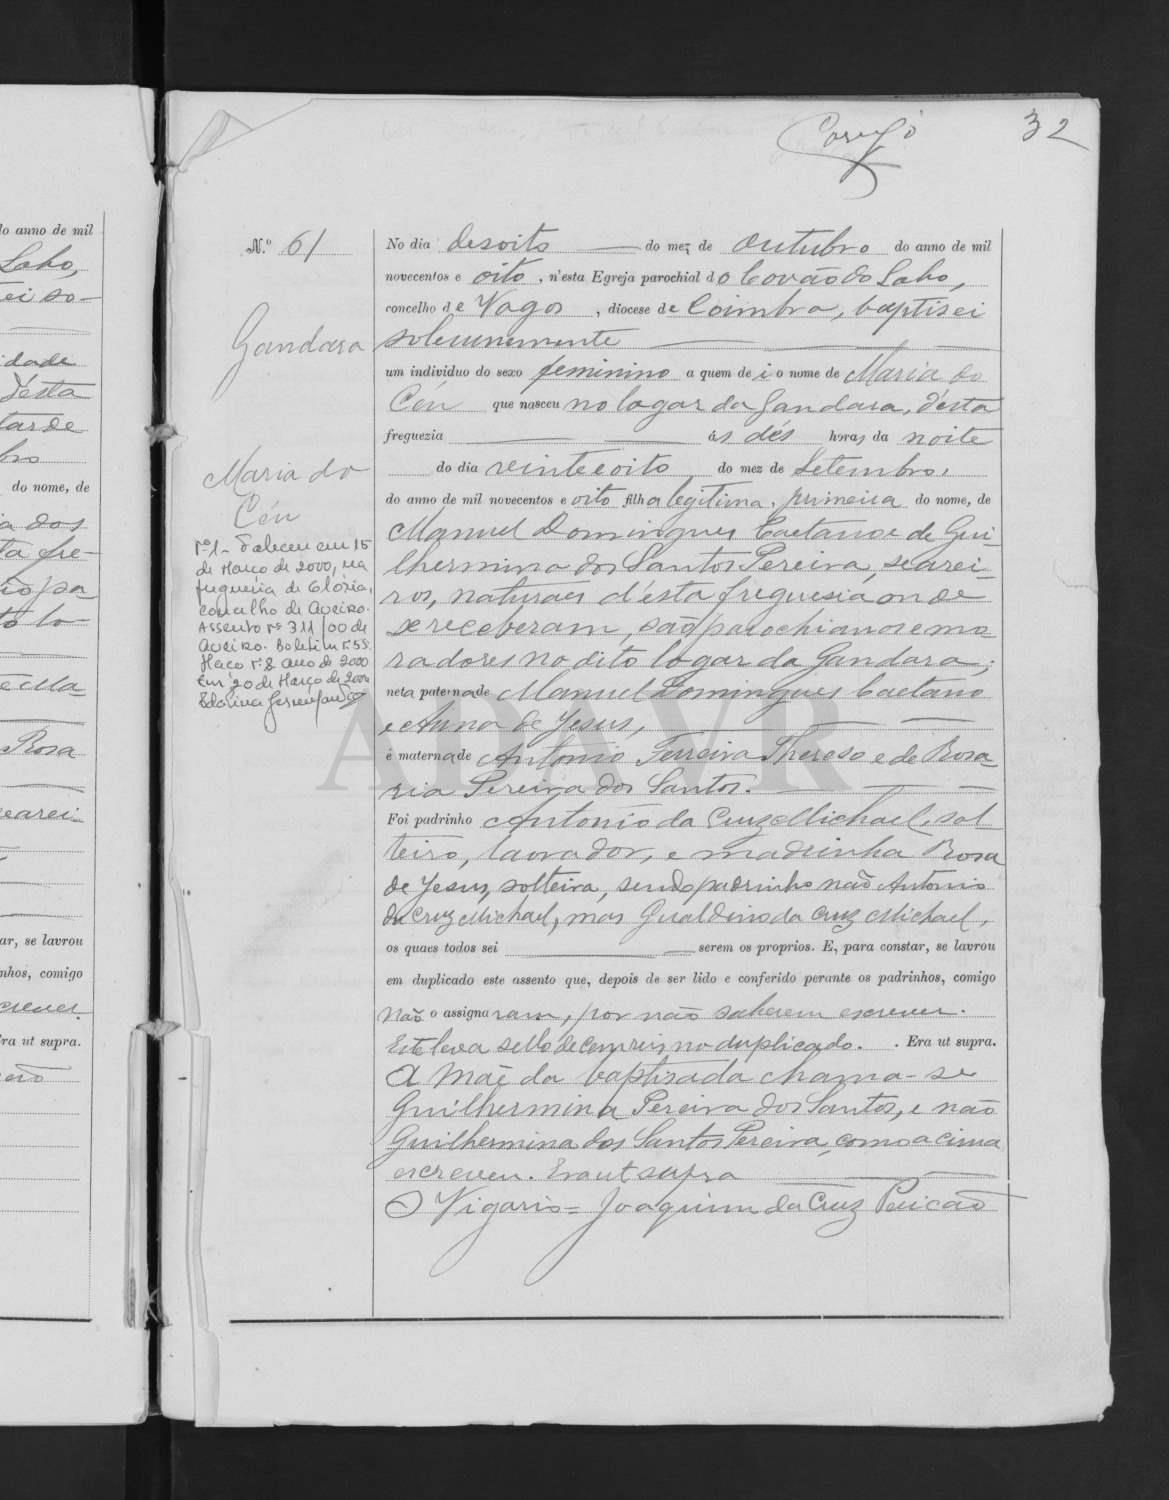 32
N.º 61
Gandara
Maria do
Céu
Nº 1 - Faleceu em 15
de Março de 2000, na
freguesia de Glória,
concelho de Aveiro.
Assento nº 311/00 de
Aveiro. Boletim nº 55.
Maço nº 8 ano de 2000
Em 20 de Março de 2000
No dia desoito do mez de Outubro do anno de mil
novecentos e oito, n'esta Egreja parochial do Covão do Lobo,
concelho de Vagos, diocese de Coimbra, baptisei
solemnemente
um individuo do sexo feminino a quem dei o nome de Maria do
Céu que nasceu no logar da Gandara, d'esta
freguezia ás dés horas da noite
do dia vinte e oito do mez de Setembro,
do anno de mil novecentos e oito filha legitima, primeira do nome, de
Manuel Domingues Caetano e de Gui-
lhermina dos Santos Pereira, searei-
ros, naturaes d'esta freguesia onde
se receberam, são parochianos e mo-
radores no dito logar da Gandara;
neta paterna de Manuel Domingues Caetano
e Anna de Jesus,
e materna de Antonio Ferreira Thereso e de Rosa-
ria Pereira dos Santos.
Foi padrinho Antonio da Cruz Michael, sol-
teiro, lavrador, e madrinha Rosa
de Jesus, solteira, sendo padrinho não Antonio
da Cruz Michael, mas Gualdino da Cruz Michael,
os quaes todos sei serem os proprios. E, para constar, se lavrou
em duplicado este assento que, depois de ser lido e conferido perante os padrinhos, comigo
não o assignaram, por não saberem escrever.
Este leva sello de cem reis, no duplicado. . Era ut supra.
A Mãe da baptisada chama-se
Guilhermina Pereira dos Santos, e não
Guilhermina dos Santos Pereira, como acima
escreveu. Era ut supra
O Vigario = Joaquim da Cruz Pericão
ADAVR
do anno de mil
Lobo,
idade
d'esta
tarde
bro
do nome, de
ia dos
ta fre-
Rosa
searei-
ar, se lavrou
nhos, comigo
escrever.
Era ut supra.